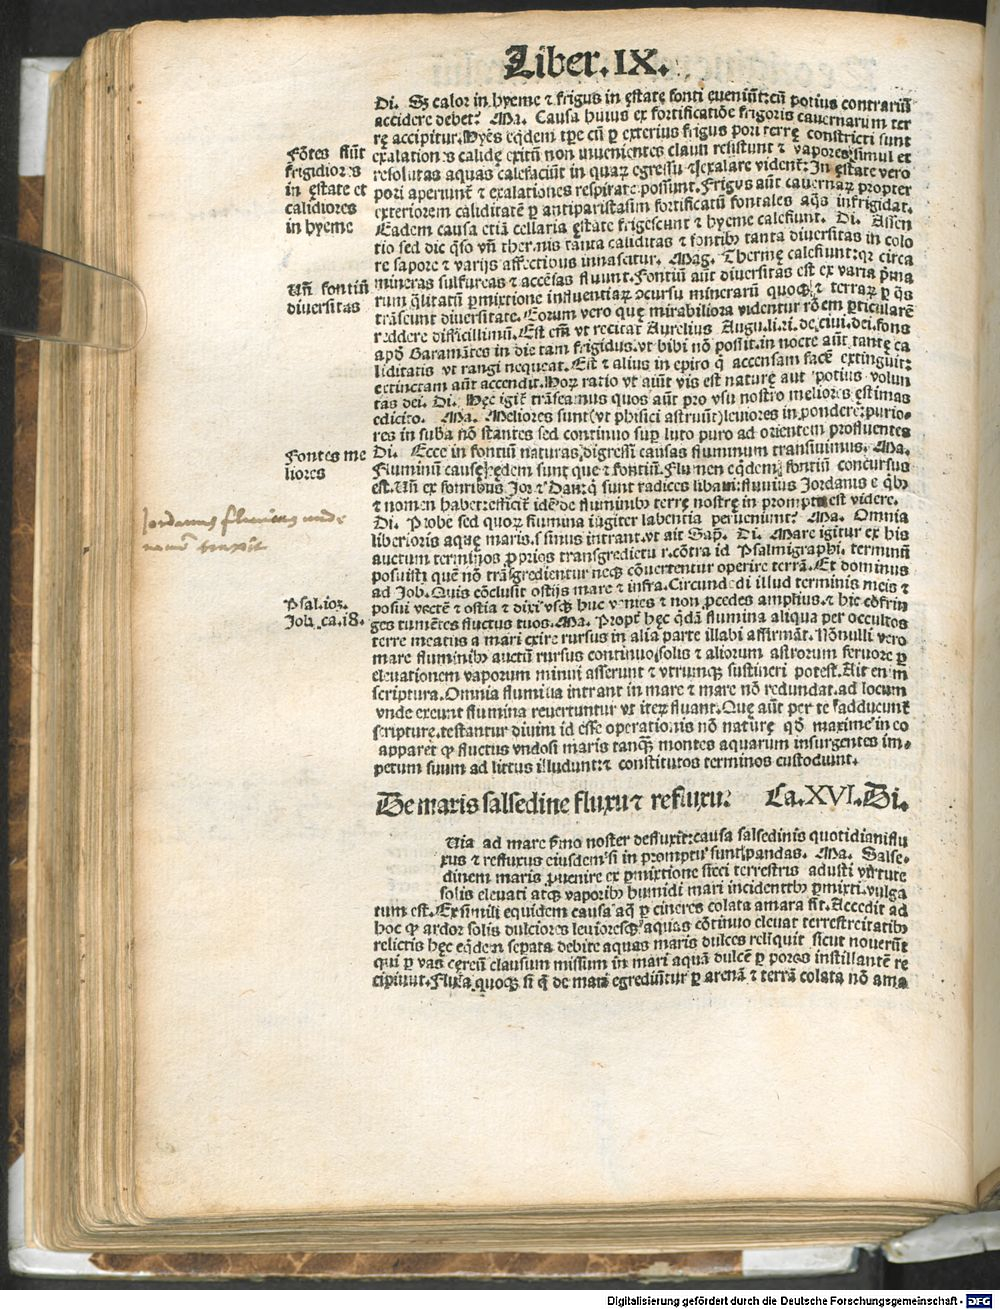 Liber. IX.
Di. Sꝫ calor in hyeme ⁊ frigus in ęstate fonti eueniūt: cū potius contrariū
accidere debet? Ma. Causa huius ex fortificatiōe frigoris cauernarum ter
rę accipitur. Hyēs eqͥdem tꝑe cū ꝑ exterius frigus pori terrę constricti sunt
exalationes calidę exitū non inuenientes clausi resistunt ⁊ vapores simul et
resolutas aquas calefaciūt in quaꝝ egressu exalare vident᷑: In ęstate vero
pori aperiunt᷑ ⁊ exalationes respirate possunt. Frigus aūt cauernaꝝ propter
exteriorem caliditatē ꝑ antiparistasim fortificatū fontales aqͣs infrigidat.
Eadem causa etiā cellaria ęstate frigescunt ⁊ hyeme calefiunt. Di. Assen
tio sed dic qͥso vn̄ thermis tanta caliditas ⁊ fontibꝰ tanta diuersitas in colo
re sapore ⁊ varijs affectibus innascatur. Mag. Thermę calefiunt: qꝛ circa
mineras sulfureas ⁊ accēsas fluunt. Fontiū aūt diuersitas est ex varia pͥma
rum qͣlitatū ꝑmixtione influentiaꝝ ↄcursu minerarū quoqꝫ ⁊ terraꝝ ꝑ qͣs
trāseunt diuersitate. Eorum vero quę mirabiliora videntur rōem ꝑticularē
reddere difficillimū. Est em̄ vt recitat Aurelius Augu. li. xi. de ciui. dei. fons
apď Garamātes in die tam frigidus. vt bibi nō possit. in nocte aūt tantę ca
liditatis vt tangi nequeat. Est ⁊ alius in epiro qͥ accensam facē extinguit:
extinctam aūt accendit. Hoꝝ ratio vt aiūt vis est naturę aut potius volun
tas dei. Di. Hęc igit᷑ trāseamus quos aūt pro vsu nostro meliores ęstimas
edicito. Ma. Meliores sunt (vt phisici astruūt) leuiores in pondere: purio-
res in suba nō stantes sed continuo suꝑ luto puro ad orientem profluentes
Di. Ecce in fontiū naturas digressi causas fluminum transiuimus. Ma.
Fluminū causę hędem sunt que ⁊ fontiū. Flumen eqͥdem fontiū concursus
est. Vn̄ ex fontibus Jor ⁊ Dan: qͥ sunt radices libani: fluuius Jordanis e qͥbꝰ
⁊ nomen habet: efficit᷑ idē de fluminibꝰ terrę nostrę in promptu est videre.
Di. Probe sed quoꝝ flumina iugiter labentia perueniunt? Ma. Omnia
liberioris aquę maris. s sinus intrant. vt ait Sap. Di. Mare igitur ex his
auctum terminos ꝓprios transgredietur. cōtra id Psalmigraphi. terminū
posuisti quē nō trāsgredientur neqꝫ cōuertentur operire terrā. Et dominus
ad Job. Quis cōclusit ostijs mare ⁊ infra. Circundedi illud terminis meis ⁊
posui vectē ⁊ ostia ⁊ dixi vsqꝫ huc venies ⁊ non ꝓcedes amplius. ⁊ hic cōfrin
ges tumētes fluctus tuos. Ma. Propt᷑ hęc qͥdā flumina aliqua per occultos
terre meatus a mari exire rursus in alia parte illabi affirmāt. Nōnulli vero
mare fluminibꝰ auctū rursus continuo solis ⁊ aliorum astrorum feruore ꝑ
eleuationem vaporum minui asserunt ⁊ vtrumqꝫ sustineri potest. Ait enim
scriptura. Omnia flumina intrant in mare ⁊ mare nō redundat. ad locum
vnde exeunt flumina reuertuntur vt iteꝝ fluant. Quę aūt per te adducunt᷑
scripturę. testantur diuini id esse operationis nō naturę qď maxime in eo
apparet ꝙ fluctus vndosi maris tanqꝫ montes aquarum insurgentes im-
petum suum ad littus illudunt: ⁊ constitutos terminos custodiunt.
De maris salsedine fluxu ⁊ refluxu? Ca. XVI. Di.
Uia ad mare sermo noster defluxit: causa salsedinis quotidiani flu
xus ⁊ refluxus eiusdem si in promptu sunt pandas. Ma. Salse-
dinem maris ꝓuenire ex ꝑmixtione sicci terrestris adusti virtute
solis eleuati atqꝫ vaporibꝰ humidi mari incidentibꝰ ꝑmixti. vulga
tum est. Ex simili equidem causa aqͣ ꝑ cineres colata amara fit. Accedit ad
hoc ꝙ ardor solis dulciores leuioresqꝫ aquas cōtinuo eleuat terrestreitatibꝰ
relictis hęc eqͥdem sepata debite aquas maris dulces reliquit sicut nouerūt
qui ꝑ vas cereū clausum missum in mari aquā dulcē ꝑ poros instillantē re
cipiunt. Fluxa quoqꝫ si qͣ de mari egrediūtur ꝑ arenā ⁊ terrā colata nō ama
Fōtes fiūt
frigidiores
in ęstate et
calidiores
in hyeme
Vn̄ fontiū
diuersitas
Fontes me
liores
Jordanus fluuius unde
nomen traxit
Psal. 103.
Job. ca. 18.
Digitalisierung gefördert durch die Deutsche Forschungsgemeinschaft - DFG